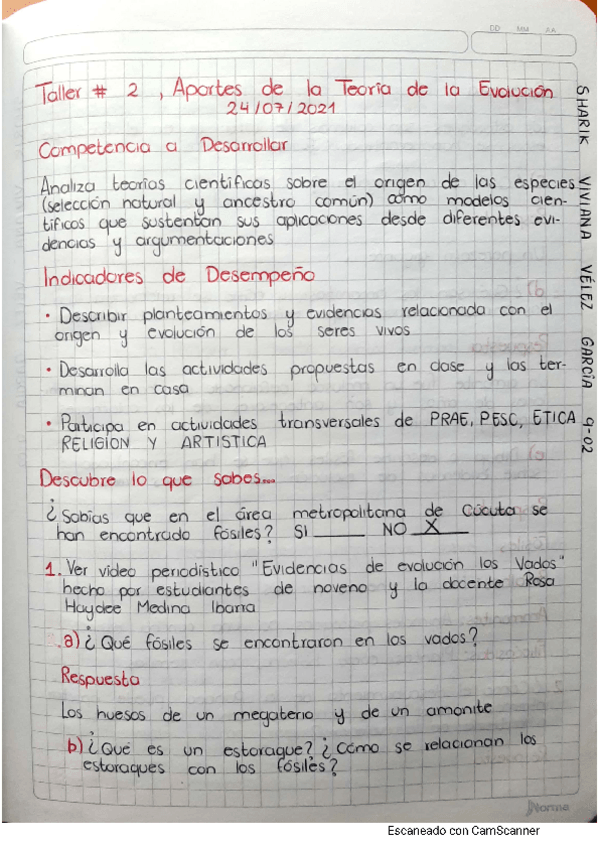 DD MM AA
Taller # 2 , Aportes de la Teoría de la Evolución
24/07/2021
Competencia a Desarrollar
Analiza teorias científicas sobre el origen de las especies
(selección natural y ancestro común) como modelos cien-
tíficos que sustentan sus aplicaciones desde diferentes evi-
dencias y argumentaciones
Indicadores de Desempeño
• Describir planteamientos y evidencias relacionada con el
origen y evolución de los seres vivos
• Desarrolla las actividades propuestas en clase y las ter-
minan en casa
• Participa en actividades transversales de PRAE, PESC, ETICA
RELIGION Y ARTISTICA
Descubre lo que sabes...
¿Sabias que en el área metropolitana de Cúcuta se
han encontrado fósiles? SI ______ NO __X__
1. Ver video periodístico "Evidencias de evolución los Vados"
hecho por estudiantes de noveno y la docente Rosa
Haydee Medina Ibarra
a) ¿Qué fósiles se encontraron en los vados?
Respuesta
Los huesos de un megaterio y de un amonite
b) ¿Qué es un estoraque? ¿Cómo se relacionan los
estoraques con los fósiles?
SHARIK VIVIANA VÉLEZ GARCÍA 9-02
Norma
Escaneado con CamScanner